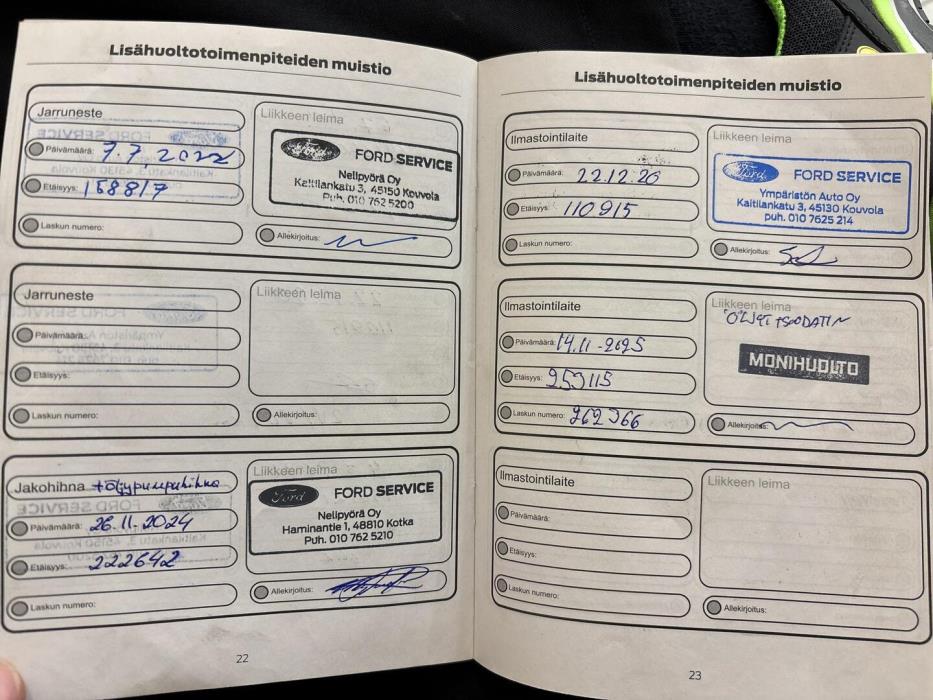 Lisähuoltotoimenpiteiden muistio
Jarruneste
Päivämäärä: 7.7 2022
Etäisyys: 158817
Laskun numero:
Liikkeen leima
Ford FORD SERVICE
Nelipyörä Oy
Kaitilankatu 3, 45150 Kouvola
Puh. 010 762 5200
Allekirjoitus:
Jarruneste
Päivämäärä:
Etäisyys:
Laskun numero:
Liikkeen leima
Allekirjoitus:
Jakohihna +öljypumpuhihna
Päivämäärä: 26.11.2024
Etäisyys: 222642
Laskun numero:
Liikkeen leima
Ford FORD SERVICE
Nelipyörä Oy
Haminantie 1, 48810 Kotka
Puh. 010 762 5210
Allekirjoitus:
22
Lisähuoltotoimenpiteiden muistio
Ilmastointilaite
Päivämäärä: 22.12.20
Etäisyys: 110915
Laskun numero:
Liikkeen leima
Ford FORD SERVICE
Ympäristön Auto Oy
Kaitilankatu 3, 45130 Kouvola
puh. 010 7625 214
Allekirjoitus:
Ilmastointilaite
Päivämäärä: 14.11-2025
Etäisyys: 253115
Laskun numero: 262366
Liikkeen leima
ÖLJYT+SUODATIN
MONIHUOLTO
Allekirjoitus:
Ilmastointilaite
Päivämäärä:
Etäisyys:
Laskun numero:
Liikkeen leima
Allekirjoitus:
23